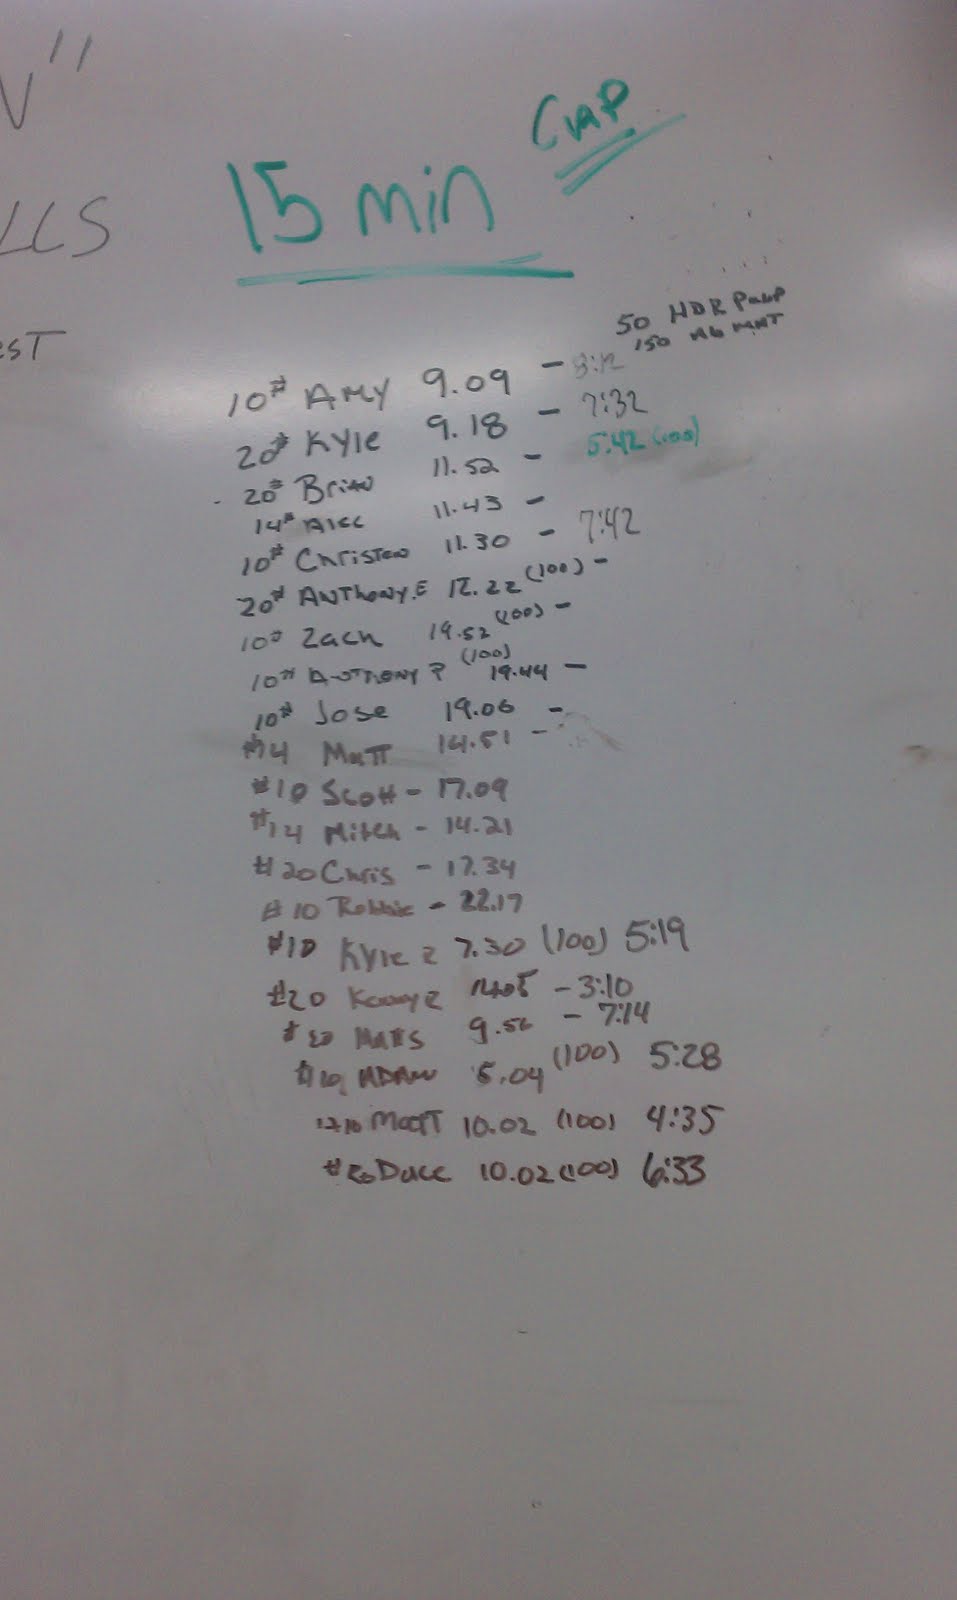 V"
LLS
EST
15 min CAP
50 HDR PUSHP
150 AB MAT
10# AMY 9.09 - 8:12
20# Kyle 9.18 - 7:32
20# Brian 11.52 - 5:42 (100)
14# Alec 11.43 -
10# Christen 11.30 - 7:42
20# ANTHONY.E 12.22 (100) -
10# Zach 19.52 (100) -
10# ANTHONY P (100) 19.44 -
10# Jose 19.06 -
#14 Matt 14.51 -
#10 Scott - 17.09
#14 Mitch - 14.21
#20 Chris - 17.34
#10 Robbie - 22.17
#10 Kyle 2 7.30 (100) 5:19
#20 - 3:10
9.56 - 7:14
5.04 (100) 5:28
Matt 10.02 (100) 4:35
Duce 10.02 (100) 6:33